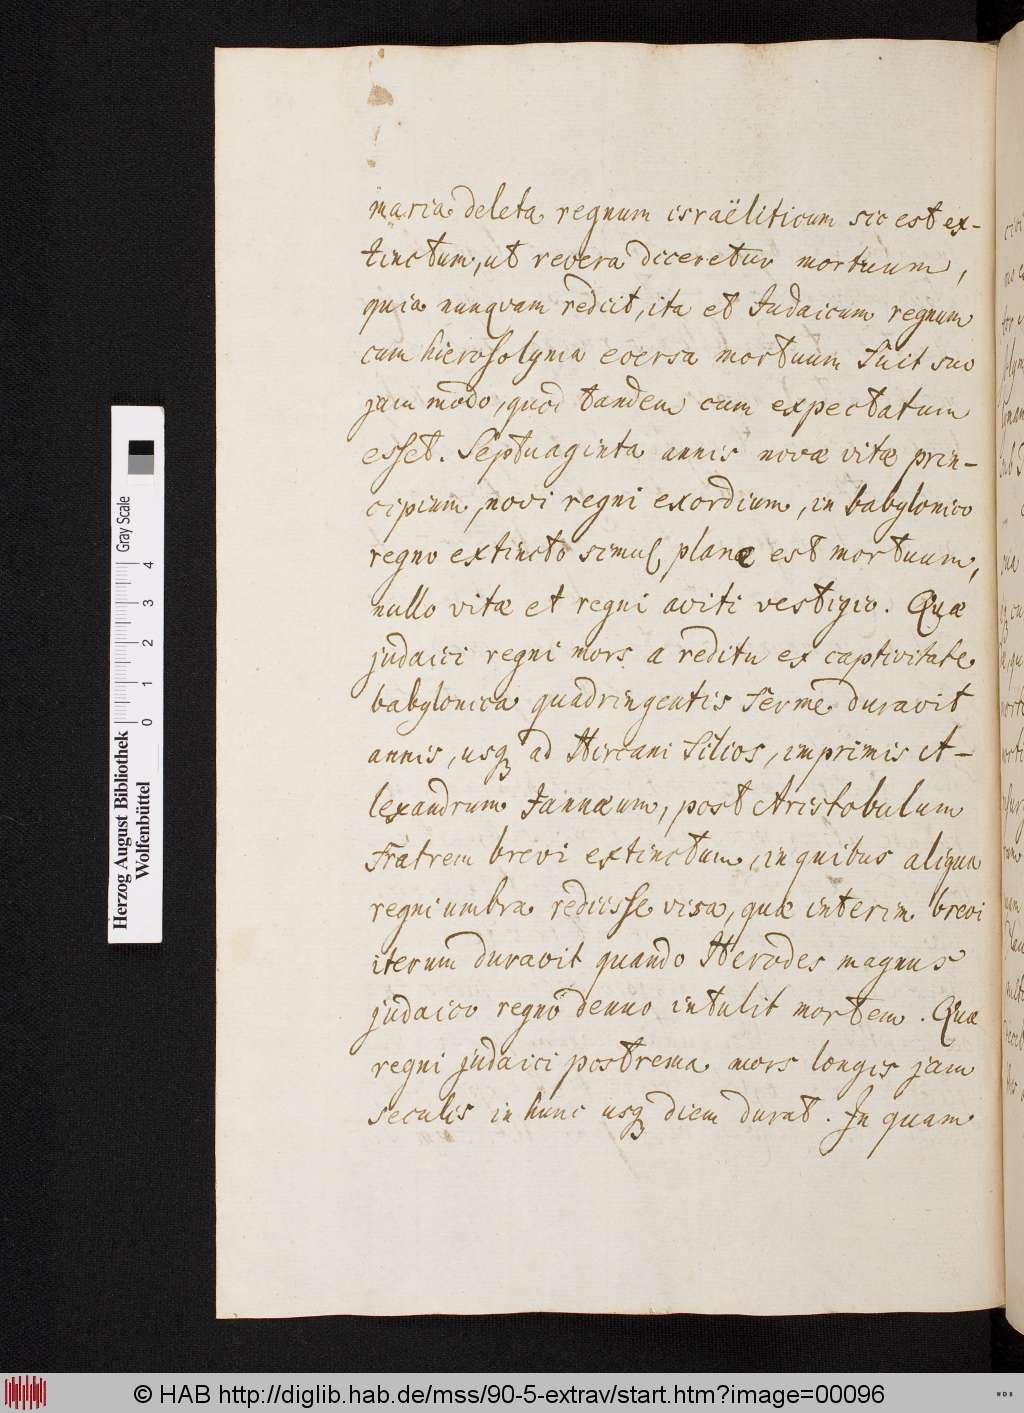 maria deleta regnum israëliticum sic est ex-
tinctum, ut revera diceretur mortuum,
quia nunquam rediit, ita et Judaicum regnum
cum hierosolyma eversa mortuum fuit suo
jam modo, quod tandem cum expectatum
esset. Septuaginta annis novæ vitæ prin-
cipium, novi regni exordium, in babylonico
regno extincto simul plane est mortuum,
nullo vitæ et regni aviti vestigio. Quæ
judaici regni mors a reditu ex captivitate
babylonica quadringentis ferme duravit
annis, usq ad Hircani filios, imprimis A-
lexandrum Jannæum, post Aristobulum
Fratrem brevi extinctum, in quibus aliqua
regni umbra rediisse visa, quæ interim brevi
iterum duravit quando Herodes magnus
judaico regno denuo intulit mortem. Quæ
regni judaici postrema mors longis jam
seculis in hunc usq diem durat. In quam
Herzog August Bibliothek
Wolfenbüttel
Gray Scale
0 1 2 3 4
© HAB http://diglib.hab.de/mss/90-5-extrav/start.htm?image=00096